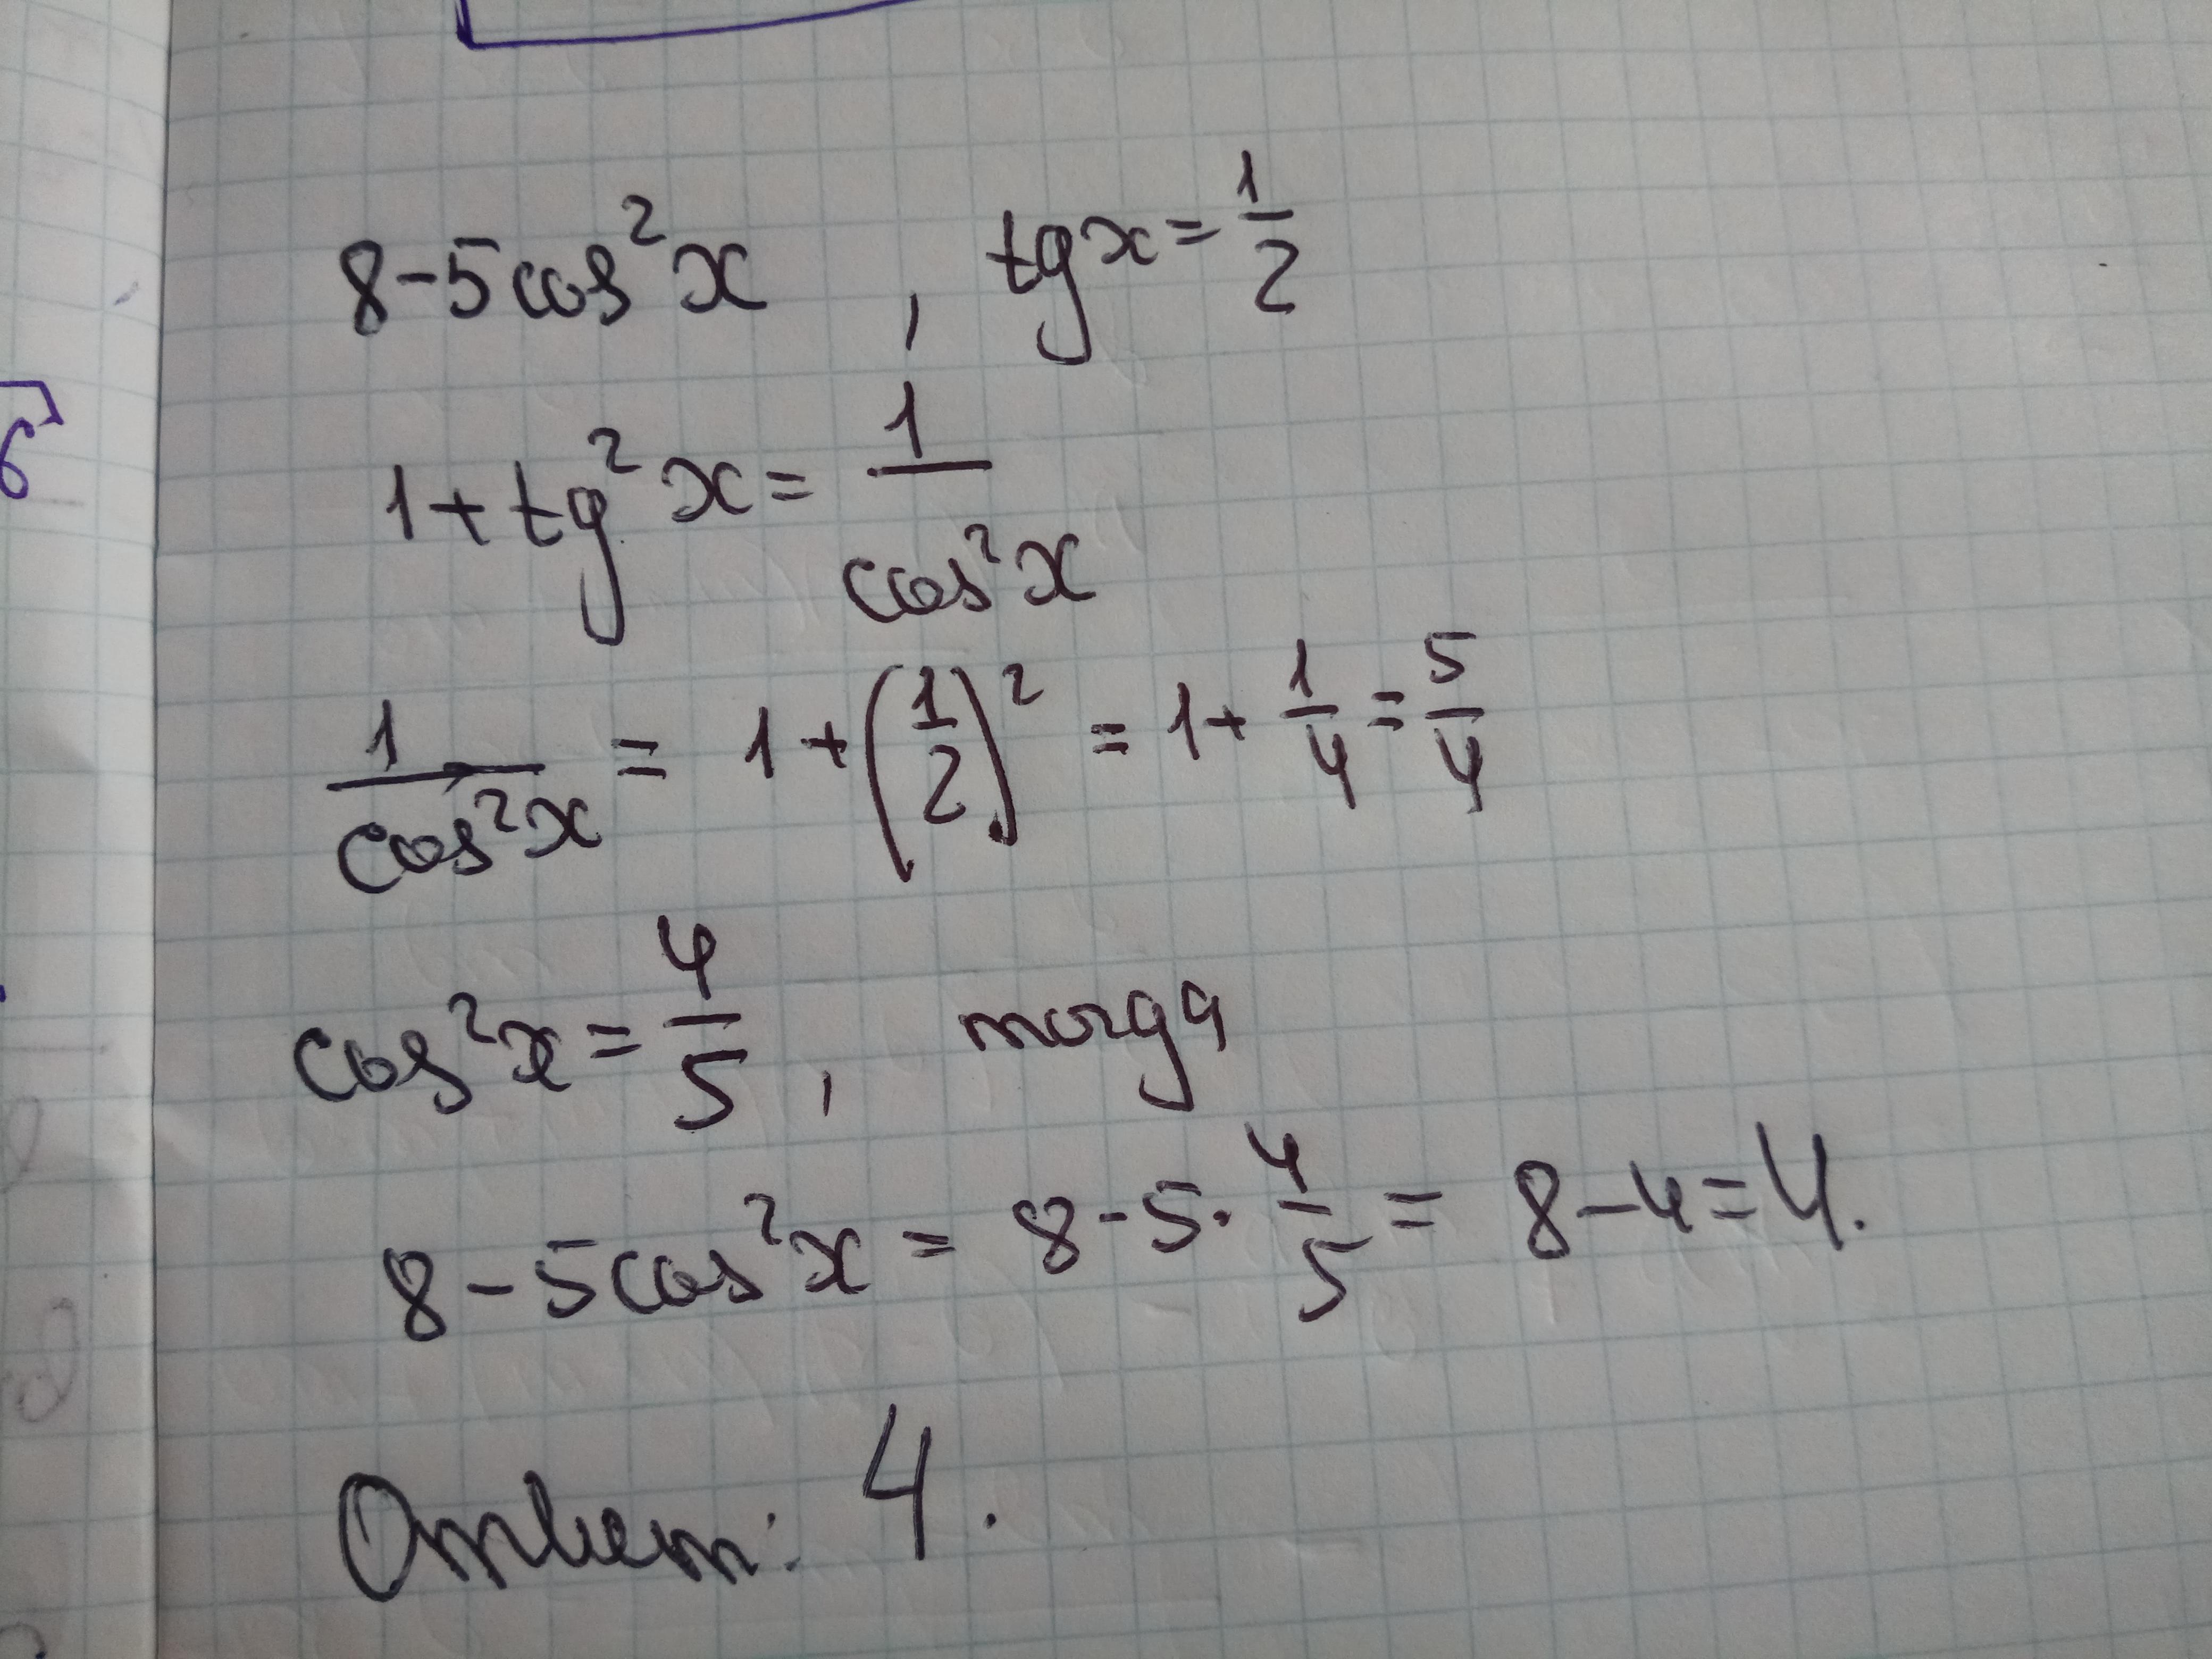 8-5cos²x , tgx=1/2
1+tg²x=1/cos²x
1/cos²x = 1+(1/2)² = 1+1/4=5/4
cos²x=4/5, тогда
8-5cos²x = 8-5·4/5 = 8-4=4.
Ответ: 4.